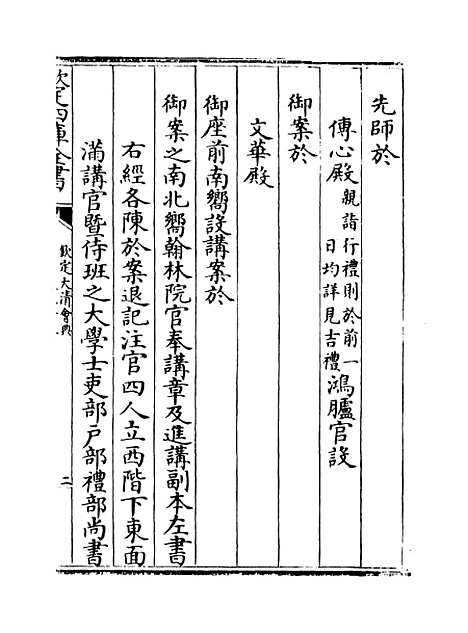 先師於
傳心殿親詣行禮則於前一日均詳見吉禮鴻臚官設
御案於
文華殿
御座前南嚮設講案於
御案之南北嚮翰林院官奉講章及進講副本左書
右經各陳於案退記注官四人立西階下東面
滿講官暨侍班之大學士吏部戸部禮部尚書
欽定四庫全書
欽定大清會典
二